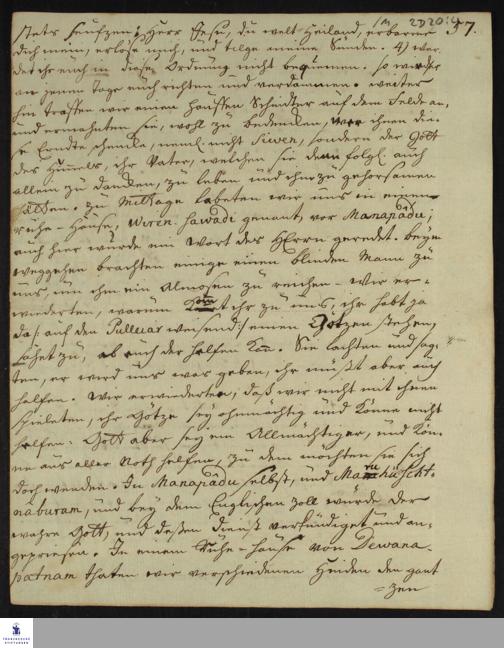 1M 2D20:4
57.
stets seufzen: Herr Jesu, du welt-Heiland, erbarme
dich mein, erlöse mich, und tilge meine Sünden. 4) wer
der ihr euch in diese Ordnung nicht beqvemen. so werde er
an jenem Tage euch richten und verdammen. weiter
hin traffen wir einen Hauffen Schnitter auf dem Felde an,
und ermahnten sie, wohl zu bedencken, wer ihnen die-
se Erndte schencke, neml. nicht Siwen, sondern der Gott
des Himmels, ihr Vater, welchen sie denn folgl. auch
allein zu dancken, zu leben und ihm zu gehorsamen
hätten. zu Mittage labeten wir uns in einem
ruhe-Hause, Wiren Sawadi genant, vor Manapádu;
auch hier wurde ein Wort des HErrn geredet. beym
weggehen brachten einige einen blinden Mann zu
uns, um ihm ein Almosen zu reichen - wir er-
wiederten, warum komt ihr zu uns, ihr habt ja
da /: auf den Pulleiar weisend :/ einen Götzen stehen,
sehet zu, ob euch der helfen kan. Sie lachten und sag-
ten, er wird uns was geben, ihr müßt aber auch
helfen. Wir erwiederten, daß wir nicht mit ihnen
spieleten, ihr Götze sey ohnmächtig und könne nicht
helfen. Gott aber sey ein Allmächtiger, und kön-
ne aus aller Noth helfen, zu dem möchten sie sich
doch wenden. In Manapádu selbst, und
naburam, und bey dem Englischen Zoll wurde der
wahre Gott, und deßen dienst verkündiget und an-
gepriesen. In einem Ruhe-Hause von Dewana-
patnam thaten wir verschiedenen Heiden den gant
=zen
FRANCKESCHE
STIFTUNGEN